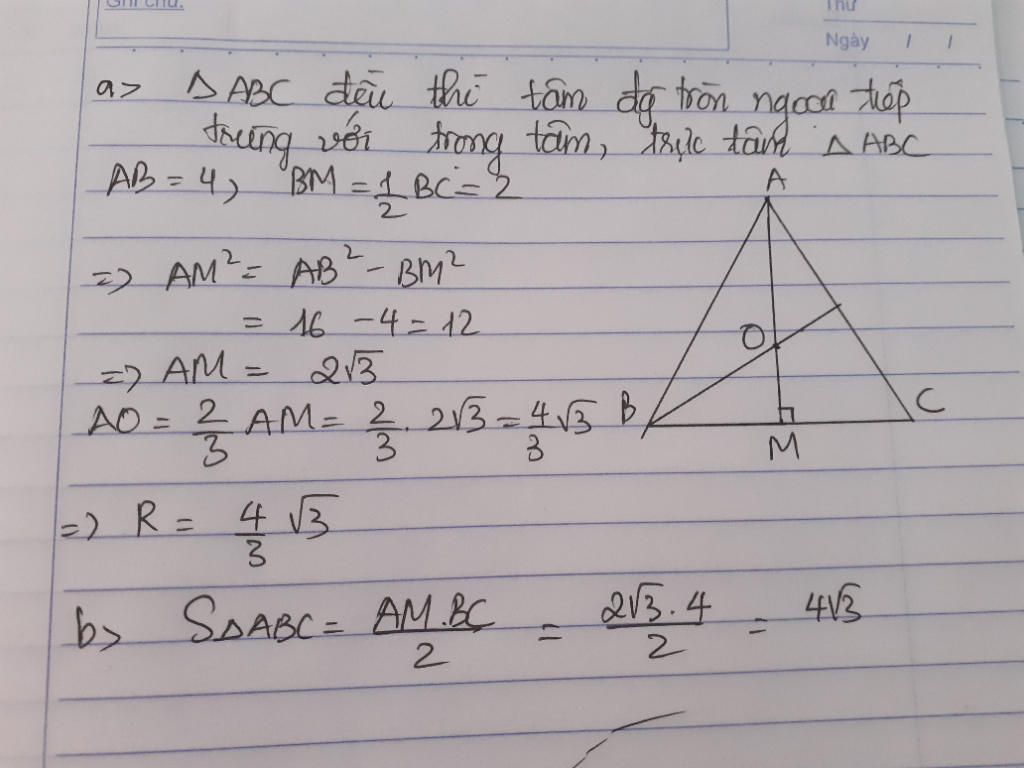 Ghi chú:
Thứ
Ngày / /
a> △ABC đều thì tâm đg tròn ngoại tiếp
trùng với trọng tâm, trực tâm △ABC
AB = 4, BM = 1/2 BC = 2
A
=> AM² = AB² - BM²
= 16 - 4 = 12
O
=> AM = 2√3
AO = 2/3 AM = 2/3 . 2√3 = 4/3 √3
B
C
M
=> R = 4/3 √3
b> S△ABC = AM.BC/2 = 2√3.4/2 = 4√3